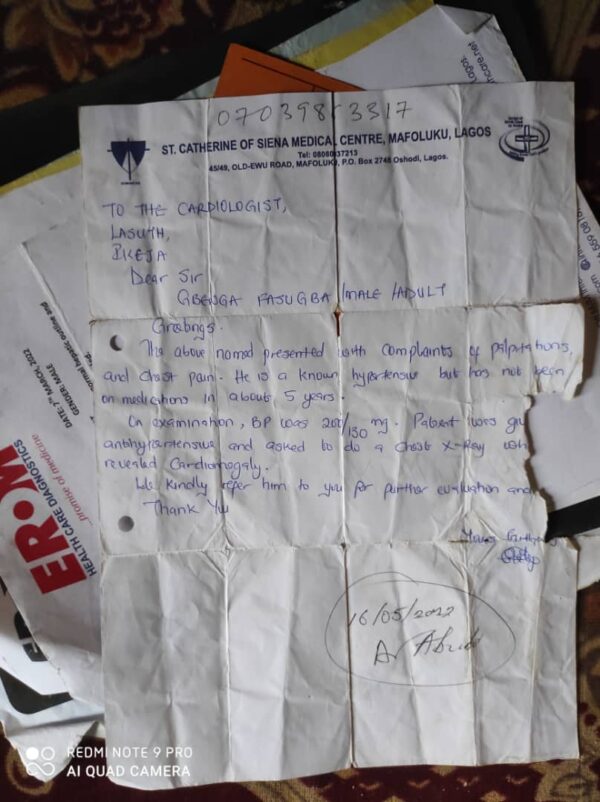 07039813317
ST. CATHERINE OF SIENA MEDICAL CENTRE, MAFOLUKU, LAGOS
45/49, OLD-EWU ROAD, MAFOLUKU, P.O. Box 2746 Oshodi, Lagos.
TO THE CARDIOLOGIST,
LASUTH,
IKEJA
Dear Sir
GBENGA FASUGBA /MALE /ADULT
Greetings.
The above named presented with complaints of palpitations,
and chest pain. He is a known hypertensive but has not been
on medications in about 5 years.
On examination, BP was 200/130 mmHg. Patient was
antihypertensive and asked to do a chest X-Ray
revealed Cardiomegaly.
We kindly refer him to you for further evaluation and
Thank You
Yours
16/05/2022
Dr
ER·M
HEALTH CARE DIAGNOSTICS
...promise of medicine
DATE: 7 MARCH, 2022
GENDER: MALE
normal hepatic outline and
Lagos.
hcare.net
REDMI NOTE 9 PRO
AI QUAD CAMERA